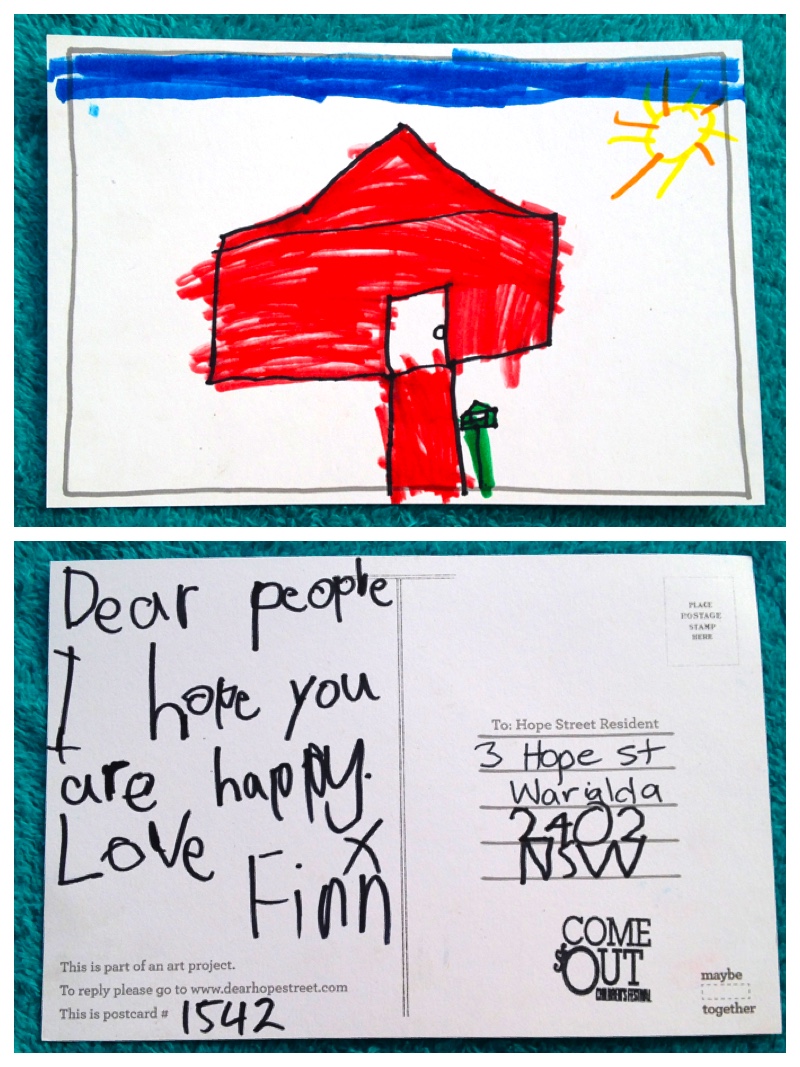 Dear people
I hope you
are happy.
Love x
Finn
This is part of an art project.
To reply please go to www.dearhopestreet.com
This is postcard # 1542
PLACE
POSTAGE
STAMP
HERE
To: Hope Street Resident
3 Hope st
Warialda
2402
NSW
COME
OUT
CHILDREN'S FESTIVAL
maybe
together